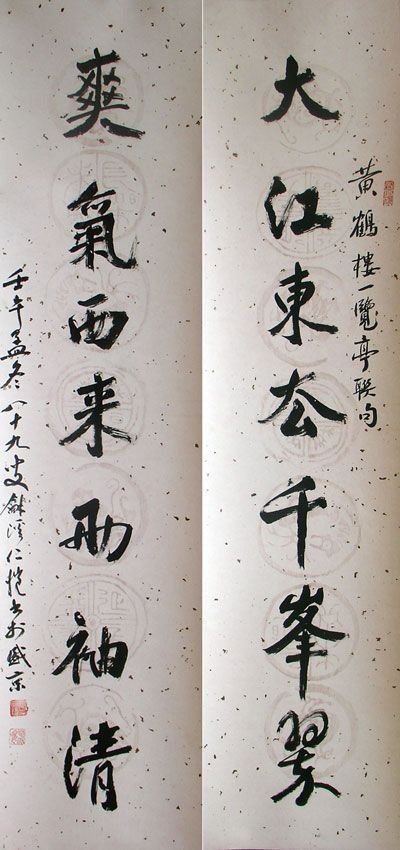 黃鶴樓一覽亭联句
大江東去千峯翠
爽氣西来兩袖清
壬午孟冬八十九叟龢溪仁愷书於盛京